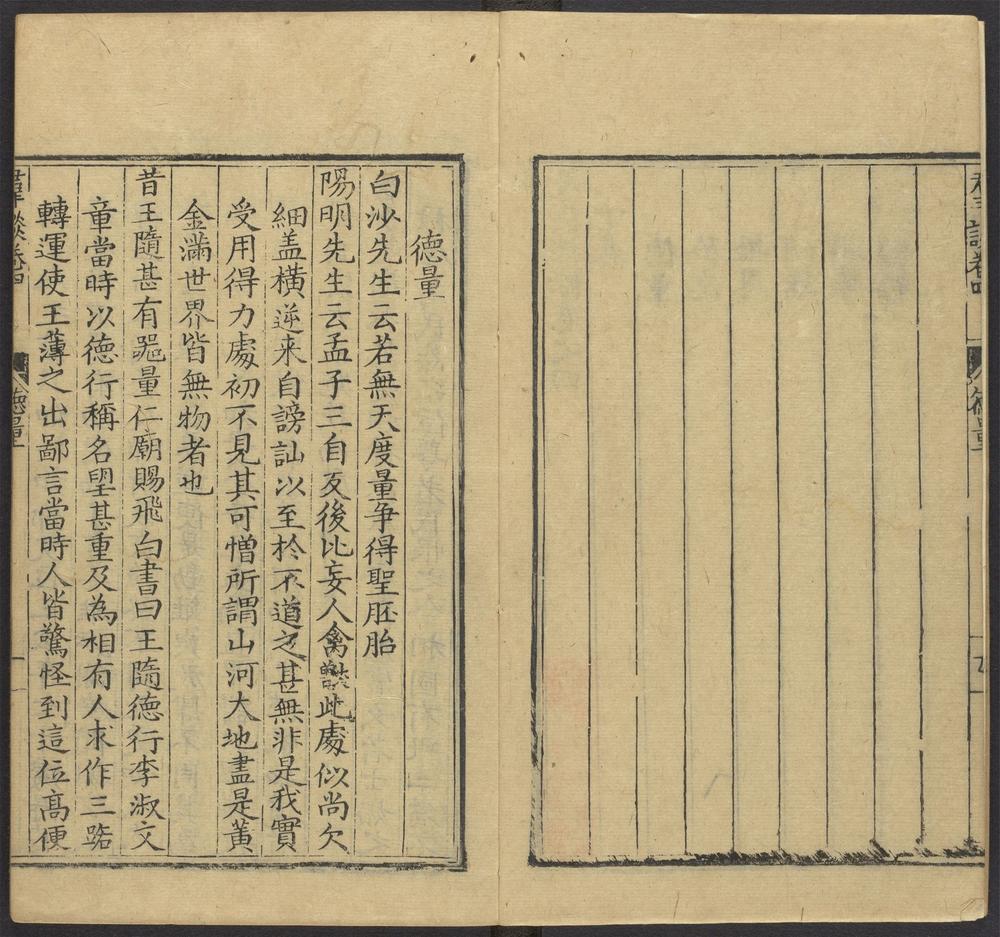 德量
白沙先生云若無天度量争得聖胚胎
陽明先生云孟子三自反後比妄人禽獸此處似尚欠
細盖横逆来自謗訕以至於不道之甚無非是我實
受用得力處初不見其可憎所謂山河大地盡是黄
金滿世界皆無物者也
昔王隨甚有噐量仁廟賜飛白書曰王隨德行李淑文
章當時以德行稱名望甚重及為相有人求作三路
轉運使王薄之出鄙言當時人皆驚怪到這位高便
德量